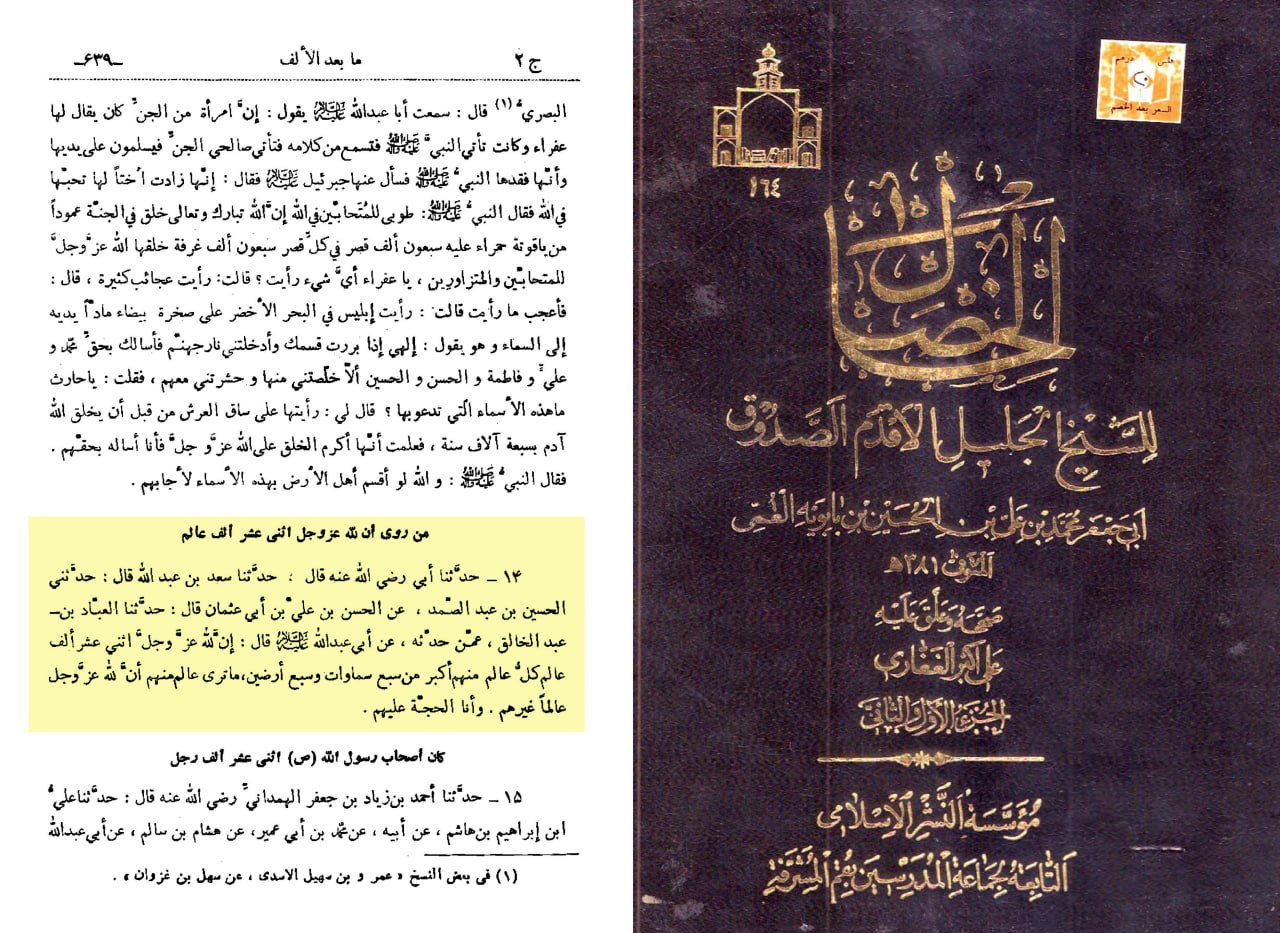 ج ٢ ما بعد الألف -٦٣٩-
البصريُّ (١) قال : سمعت أبا عبدالله عليه السلام يقول : إنَّ امرأة من الجنِّ كان يقال لها
عفراء وكانت تأتي النبيَّ صلى الله عليه وآله فتسمع من كلامه فتأتي صالحي الجنِّ فيسلمون على يديها
وأنّها فقدها النبيُّ صلى الله عليه وآله فسأل عنها جبرئيل عليه السلام فقال : إنّها زارت اُختاً لها تحبّها
في الله فقال النبيُّ صلى الله عليه وآله : طوبى للمُتَحابّين في الله إنَّ الله تبارك وتعالى خلق في الجنّة عموداً
من ياقوتة حمراء عليه سبعون ألف قصر في كلِّ قصر سبعون ألف غرفة خلقها الله عزَّ وجلَّ
للمتحابّين والمتزاورين ، يا عفراء أيَّ شيء رأيت ؟ قالت: رأيت عجائب كثيرة ، قال :
فأعجب ما رأيت قالت : رأيت إبليس في البحر الأخضر على صخرة بيضاء مادّاً يديه
إلى السماء و هو يقول : إلهي إذا بررت قسمك وأدخلتني نار جهنّم فأسالك بحقِّ محمّد و
عليٍّ و فاطمة و الحسن و الحسين ألاّ خلّصتني منها و حشرتني معهم ، فقلت : يا حارث
ما هذه الأسماء الّتي تدعو بها ؟ قال لي : رأيتها على ساق العرش من قبل أن يخلق الله
آدم بسبعة آلاف سنة ، فعلمت أنّها أكرم الخلق على الله عزَّ و جلَّ فأنا أساله بحقّهم .
فقال النبيُّ صلى الله عليه وآله : و الله لو أقسم أهل الأرض بهذه الأسماء لأجابهم .
من روى أن لله عز وجل اثنى عشر ألف عالم
١٤ ـ حدَّثنا أبي رضي الله عنه قال : حدَّثنا سعد بن عبد الله قال : حدَّثني
الحسين بن عبد الصّمد ، عن الحسن بن عليِّ بن أبي عثمان قال : حدَّثنا العبّاد بن ـ
عبد الخالق ، عمّن حدَّثه ، عن أبي عبدالله عليه السلام قال : إنَّ لله عزَّ وجلَّ اثني عشر ألف
عالم كلُّ عالم منهم أكبر من سبع سماوات وسبع أرضين، ما ترى عالم منهم أنَّ لله عزَّ وجل
عالماً غيرهم . وأنا الحجّة عليهم .
كان أصحاب رسول الله (ص) اثنى عشر ألف رجل
١٥ ـ حدَّثنا أحمد بن زياد بن جعفر الهمدانيِّ رضي الله عنه قال : حدَّثنا عليُّ
ابن إبراهيم بن هاشم ، عن أبيه ، عن محمّد بن أبي عمير، عن هشام بن سالم ، عن أبي عبدالله
(١) في بعض النسخ « عمر و بن سهيل الاسدى ، عن سهل بن غزوان » .
١٦٤
الخصال
للشيخ الجليل الأقدم الصدوق
أبي جعفر محمد بن علي بن الحسين بن بابويه القمي
المتوفى ٣٨١ هـ
صححه وعلق عليه
علي أكبر الغفاري
الجزء الأول والثاني
مؤسسة النشر الإسلامي
التابعة لجماعة المدرسين بقم المشرفة